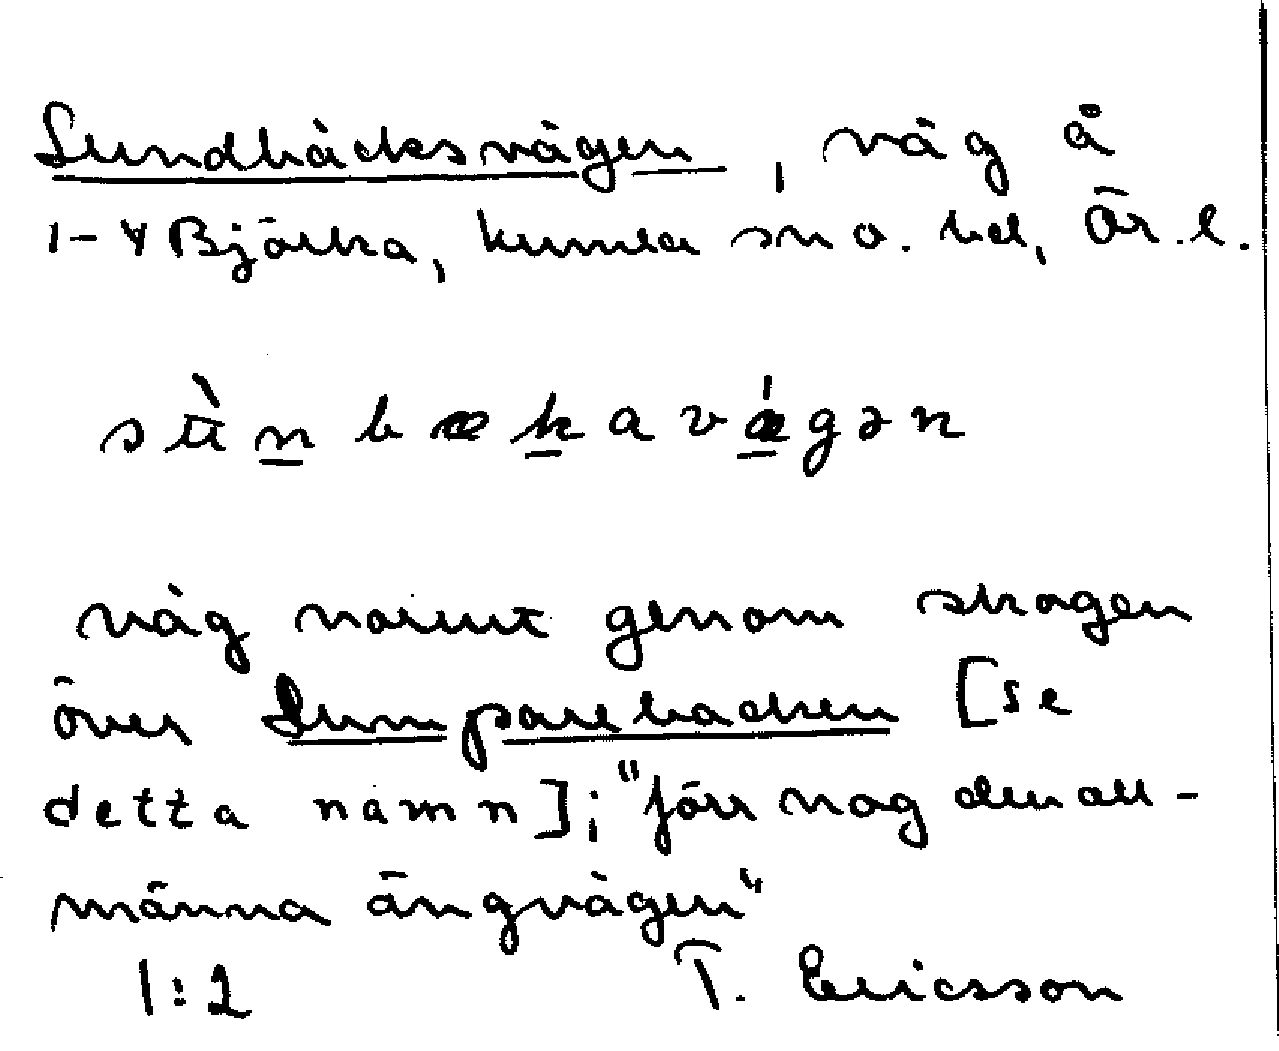 Sundbäcksvägen, väg å
1-4 Björka, Kumla sn o. hd, Ör. l.
s ʉ̀ n b æ k a v ǽ g ə n
väg norrut genom skogen
över Lumparebacken [se
detta namn]; "förr nog den all-
männa ängvägen"
1:2 T. Ericsson